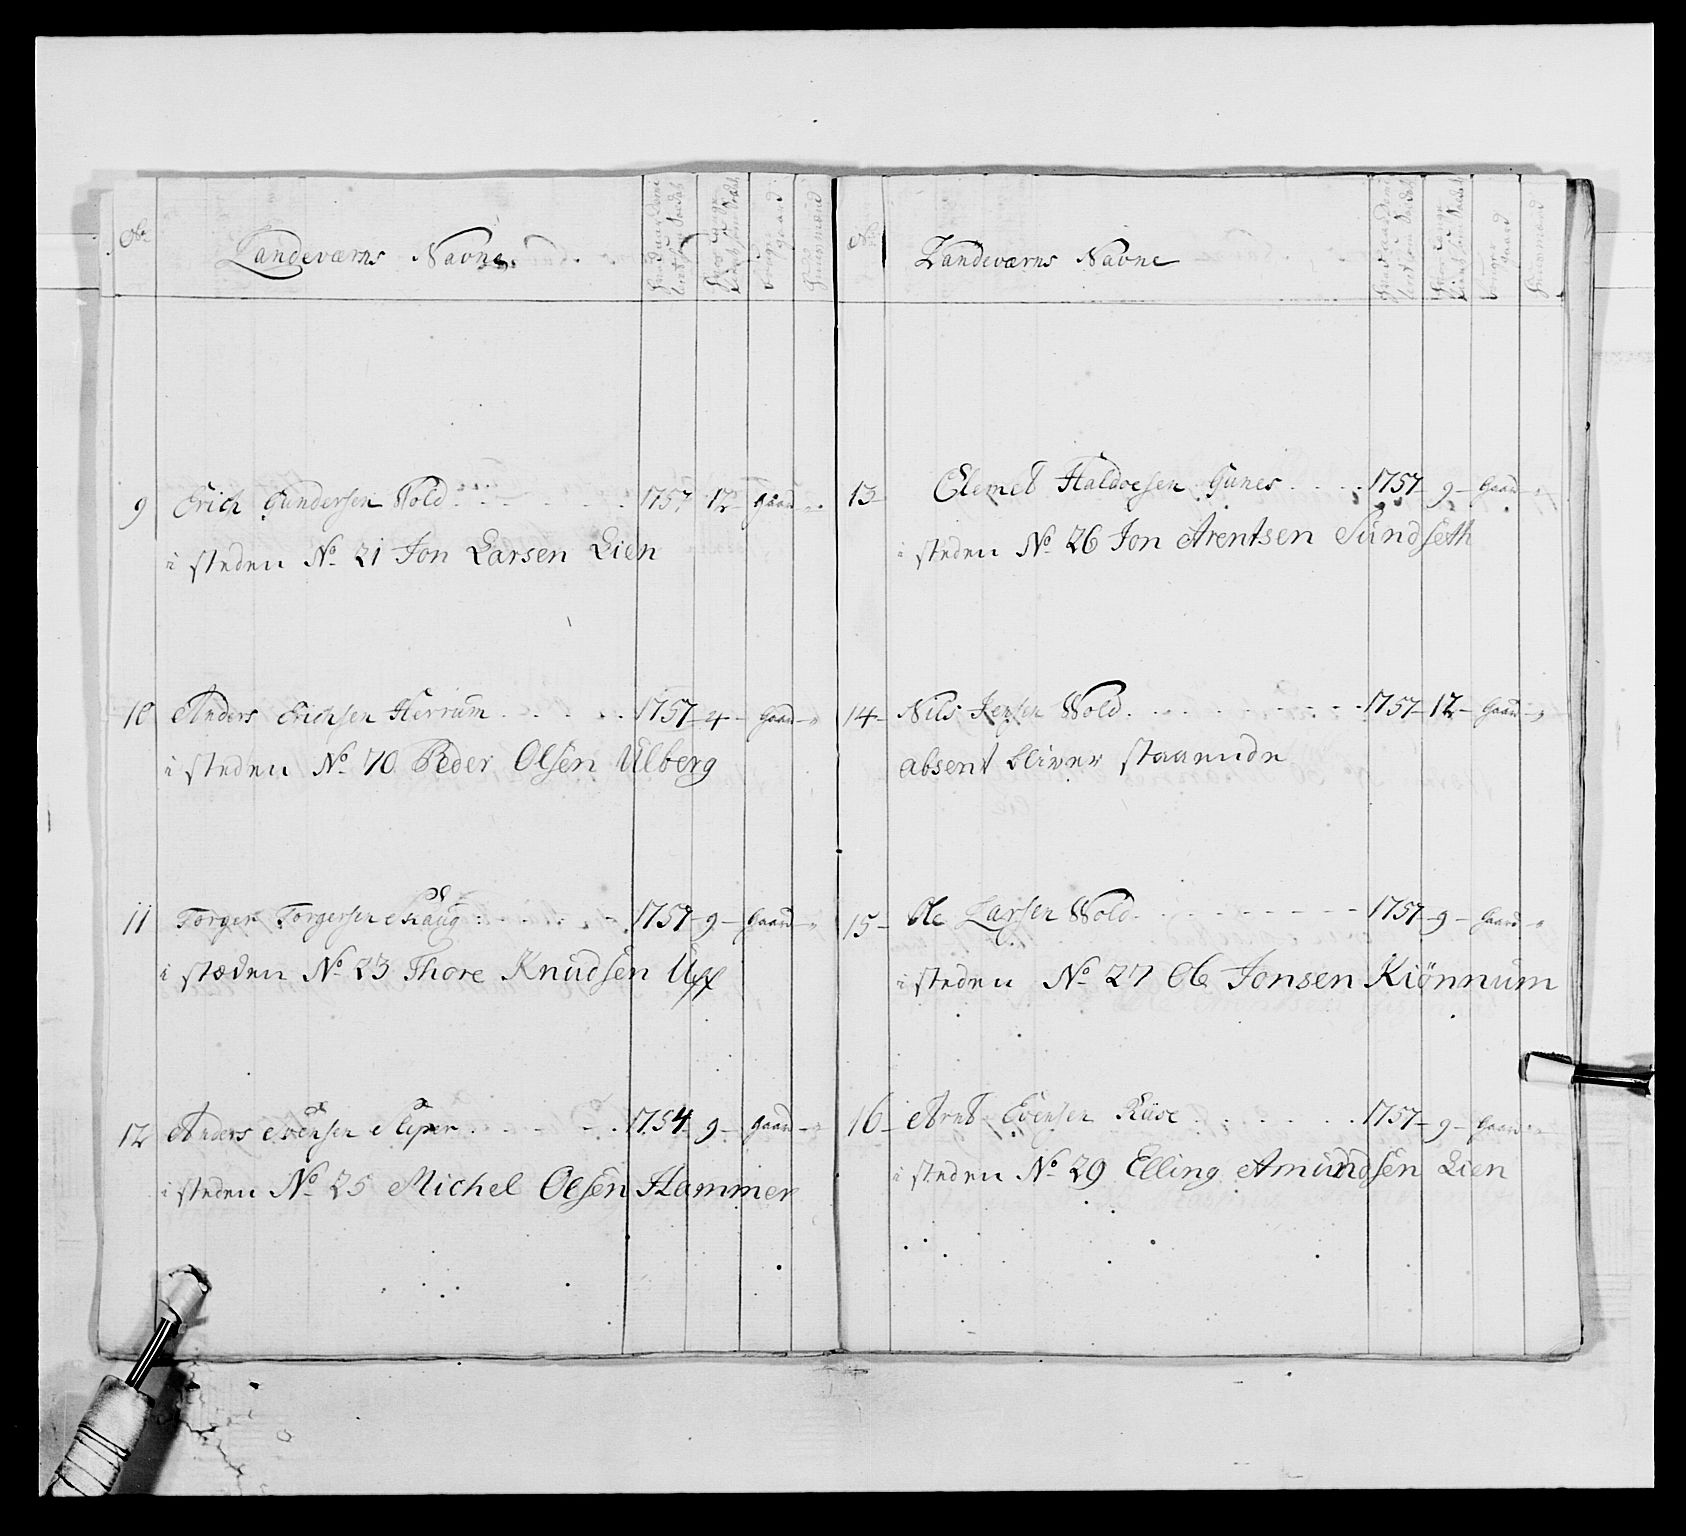 No
Landeværns Navne
9 Erich Gundersen Wold 1757 12 Gaard
i steden No 21 Jon Larsen Lien
10 Anders Erichsen Herrum 1757 4 Gaard
i steden No 70 Peder Olsen Ulberg
11 Torger Torgersen Haug 1757 9 Gaard
i stæden No 23 Thore Knudsen Uff
12 Anders Evensen 1754 9 Gaard
i steden No 25 Michel Olsen Hammer
No
Landeværns Navne
13 Clemet Haldvesen Gunes 1757 9 Gaard
i steden No 26 Jon Arentsen Sundseth
14 Nils Jensen Wold 1757 12 Gaard
absent bliver staaende
15 Ole Larsen Wold 1757 9 Gaard
i steden No 27 Ole Jonsen Kiönnum
16 Arnt Evensen 1757 9 Gaard
i steden No 29 Elling Amundsen Lien